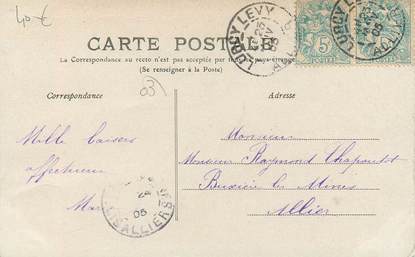 40 €
CARTE POSTALE
La Correspondance au recto n'est pas acceptée par tous les pays étrangers
(Se renseigner à la Poste)
LURCY LEVY
LURCY LEVY
ALLIER
5
03
Correspondance
Adresse
Mille baisers
affectueux
Monsieur
Monsieur Raymond Chapoutot
Buxière les Mines
Allier
05
ALLIER